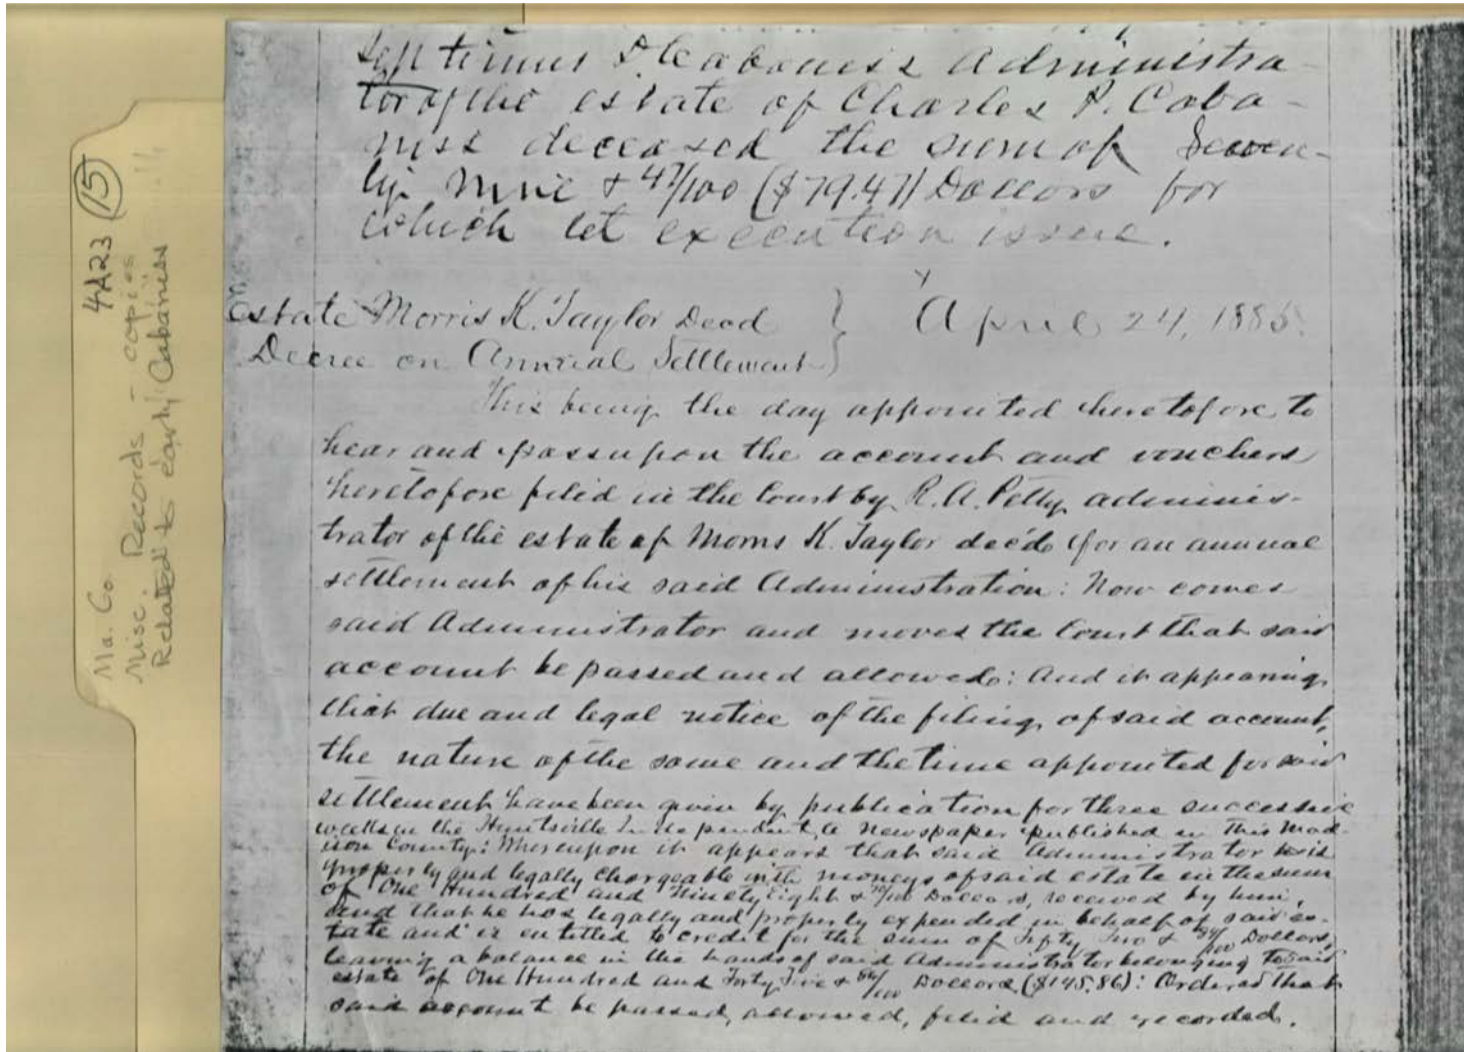 4A23 (15)
Ma. Co
Misc. Records - copies
Related to early Cabaniss
Septimus D. Cabaniss Administra-
tor of the estate of Charles P. Caba-
niss deceased the sum of Seven-
ty nine & 47/100 ($79.47) Dollars for
which let execution issue.
Estate Morris K. Taylor Decd } April 24, 1885.
Decree on Annual Settlement }
This being the day appointed heretofore to
hear and pass upon the account and vouchers
heretofore filed in the Court by R. A. Petty adminis-
trator of the estate of Morris K. Taylor dec'd for an annual
settlement of his said Administration: Now comes
said Administrator and moves the Court that said
account be passed and allowed: And it appearing
that due and legal notice of the filing of said account,
the nature of the same and the time appointed for said
settlement have been given by publication for three successive
weeks in the Huntsville Independent, a newspaper published in this Mad-
ison County: Whereupon it appears that said Administrator is
properly and legally chargeable with moneys of said estate in the sum
of One Hundred and Ninety Eight & 70/100 Dollars, received by him,
and that he has legally and properly expended in behalf of said es-
tate and is entitled to credit for the sum of Fifty Two & 84/100 Dollars,
leaving a balance in the hands of said Administrator belonging to said
estate of One Hundred and Forty Five & 86/100 Dollars ($145.86): Ordered that
said account be passed, allowed, filed and recorded.